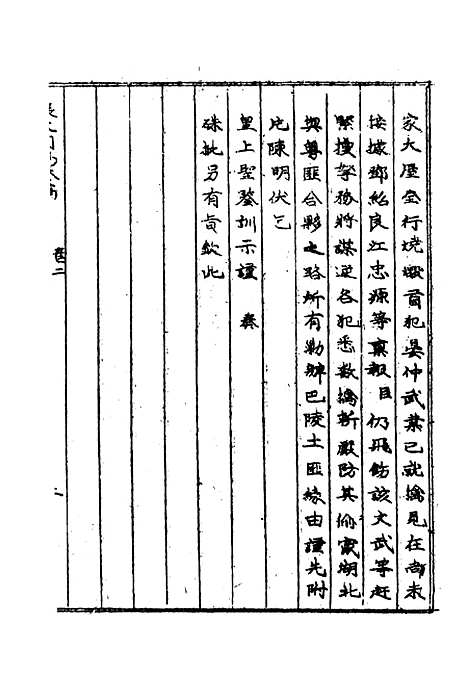 家大屋全行燒燬首犯晏仲武業已就擒見在尚未
接據鄧紹良江忠源等稟報目仍飛飭該文武等赶
緊搜拏務將謀逆各犯悉數擒斬嚴防其偷竄湖北
與粵匪合夥之路所有勦辦巴陵土匪緣由謹先附
片陳明伏乞
皇上聖鑒訓示謹 奏
硃批另有旨欽此
卷二